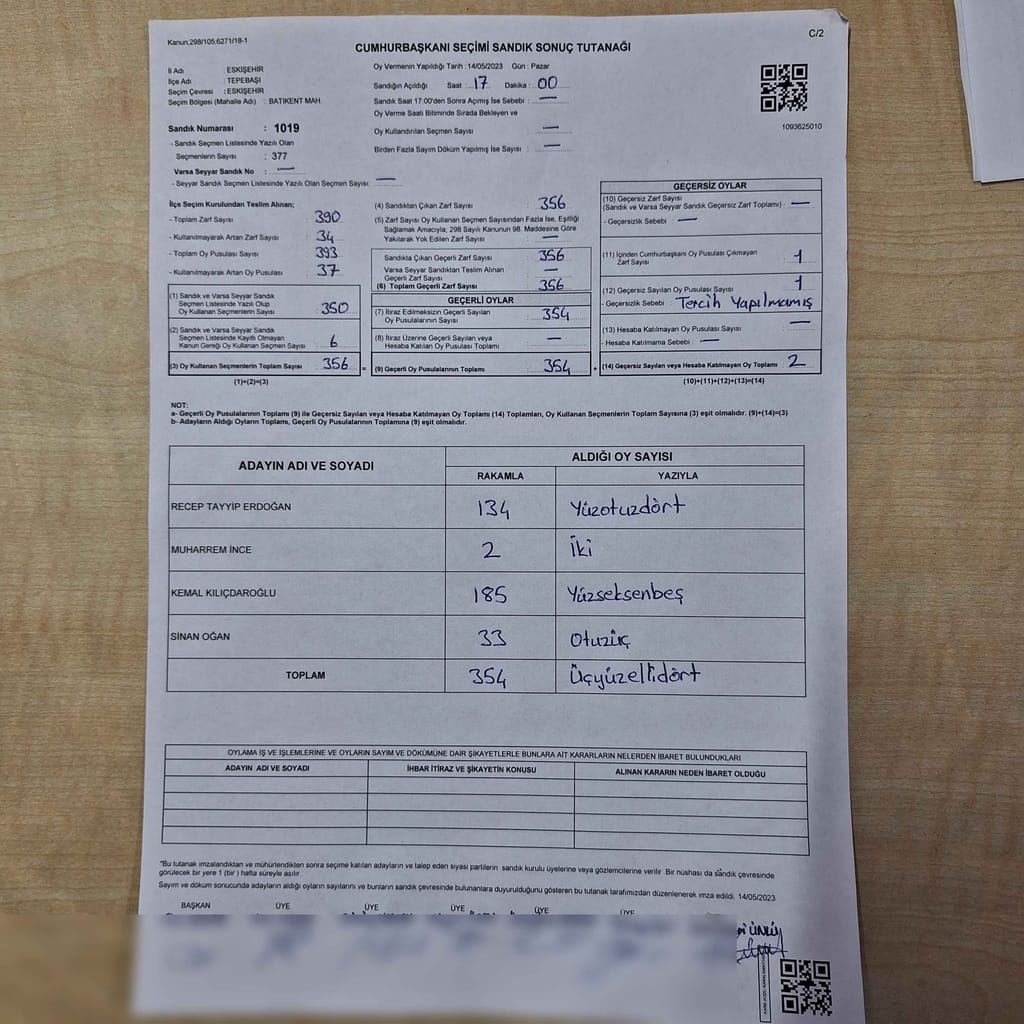 Kanun:298/105,6271/18-1
C/2
CUMHURBAŞKANI SEÇİMİ SANDIK SONUÇ TUTANAĞI
İl Adı : ESKİŞEHİR
İlçe Adı : TEPEBAŞI
Seçim Çevresi : ESKİŞEHİR
Seçim Bölgesi (Mahalle Adı) : BATIKENT MAH.
Sandık Numarası : 1019
- Sandık Seçmen Listesinde Yazılı Olan
Seçmenlerin Sayısı : 377
Varsa Seyyar Sandık No : —
- Seyyar Sandık Seçmen Listesinde Yazılı Olan Seçmen Sayısı: —
Oy Vermenin Yapıldığı Tarih : 14/05/2023 Gün : Pazar
Sandığın Açıldığı Saat : 17 Dakika : 00
Sandık Saat 17.00'den Sonra Açımış İse Sebebi : —
Oy Verme Saati Bitiminde Sırada Bekleyen ve
Oy Kullandırılan Seçmen Sayısı : —
Birden Fazla Sayım Döküm Yapılmış İse Sayısı : —
1093625010
İlçe Seçim Kurulundan Teslim Alınan;
- Toplam Zarf Sayısı : 390
- Kullanılmayarak Artan Zarf Sayısı : 34
- Toplam Oy Pusulası Sayısı : 393
- Kullanılmayarak Artan Oy Pusulası : 37
(1) Sandık ve Varsa Seyyar Sandık
Seçmen Listesinde Yazılı Olup
Oy Kullanan Seçmenlerin Sayısı : 350
(2) Sandık ve Varsa Seyyar Sandık
Seçmen Listesinde Kayıtlı Olmayan
Kanun Gereği Oy Kullanan Seçmen Sayısı : 6
(3) Oy Kullanan Seçmenlerin Toplam Sayısı : 356
(1)+(2)=(3)
(4) Sandıktan Çıkan Zarf Sayısı : 356
(5) Zarf Sayısı Oy Kullanan Seçmen Sayısından Fazla İse, Eşitliği
Sağlamak Amacıyla, 298 Sayılı Kanunun 98. Maddesine Göre
Yakılarak Yok Edilen Zarf Sayısı : —
Sandıkta Çıkan Geçerli Zarf Sayısı : 356
Varsa Seyyar Sandıktan Teslim Alınan
Geçerli Zarf Sayısı : —
(6) Toplam Geçerli Zarf Sayısı : 356
GEÇERLİ OYLAR
(7) İtiraz Edilmeksizin Geçerli Sayılan
Oy Pusulalarının Sayısı : 354
(8) İtiraz Üzerine Geçerli Sayılan veya
Hesaba Katılan Oy Pusulası Toplamı : —
= (9) Geçerli Oy Pusulalarının Toplamı : 354
GEÇERSİZ OYLAR
(10) Geçersiz Zarf Sayısı
(Sandık ve Varsa Seyyar Sandık Geçersiz Zarf Toplamı) : —
- Geçersizlik Sebebi : —
(11) İçinden Cumhurbaşkanı Oy Pusulası Çıkmayan
Zarf Sayısı : 1
(12) Geçersiz Sayılan Oy Pusulası Sayısı : 1
- Geçersizlik Sebebi : Tercih Yapılmamış
(13) Hesaba Katılmayan Oy Pusulası Sayısı : —
- Hesaba Katılmama Sebebi : —
+ (14) Geçersiz Sayılan veya Hesaba Katılmayan Oy Toplamı : 2
(10)+(11)+(12)+(13)=(14)
NOT:
a- Geçerli Oy Pusulalarının Toplamı (9) ile Geçersiz Sayılan veya Hesaba Katılmayan Oy Toplamı (14) Toplamları, Oy Kullanan Seçmenlerin Toplam Sayısına (3) eşit olmalıdır. (9)+(14)=(3)
b- Adayların Aldığı Oyların Toplamı, Geçerli Oy Pusulalarının Toplamına (9) eşit olmalıdır.
ADAYIN ADI VE SOYADI ALDIĞI OY SAYISI
RAKAMLA YAZIYLA
RECEP TAYYİP ERDOĞAN 134 Yüzotuzdört
MUHARREM İNCE 2 İki
KEMAL KILIÇDAROĞLU 185 Yüzseksenbeş
SİNAN OĞAN 33 Otuzüç
TOPLAM 354 Üçyüzellidört
OYLAMA İŞ VE İŞLEMLERİNE VE OYLARIN SAYIM VE DÖKÜMÜNE DAİR ŞİKAYETLERLE BUNLARA AİT KARARLARIN NELERDEN İBARET BULUNDUKLARI
ADAYIN ADI VE SOYADI İHBAR İTİRAZ VE ŞİKAYETİN KONUSU ALINAN KARARIN NEDEN İBARET OLDUĞU
*Bu tutanak imzalandıktan ve mühürlendikten sonra seçime katılan adayların ve talep eden siyasi partilerin sandık kurulu üyelerine veya gözlemcilerine verilir .Bir nüshası da sandık çevresinde
görülecek bir yere 1 (bir ) hafta süreyle asılır.
Sayım ve döküm sonucunda adayların aldığı oyların sayılarını ve bunların sandık çevresinde bulunanlara duyurulduğunu gösteren bu tutanak tarafımızdan düzenlenerek imza edildi. 14/05/2023
BAŞKAN ÜYE ÜYE ÜYE ÜYE ÜYE ÜYE
ÜNLÜ